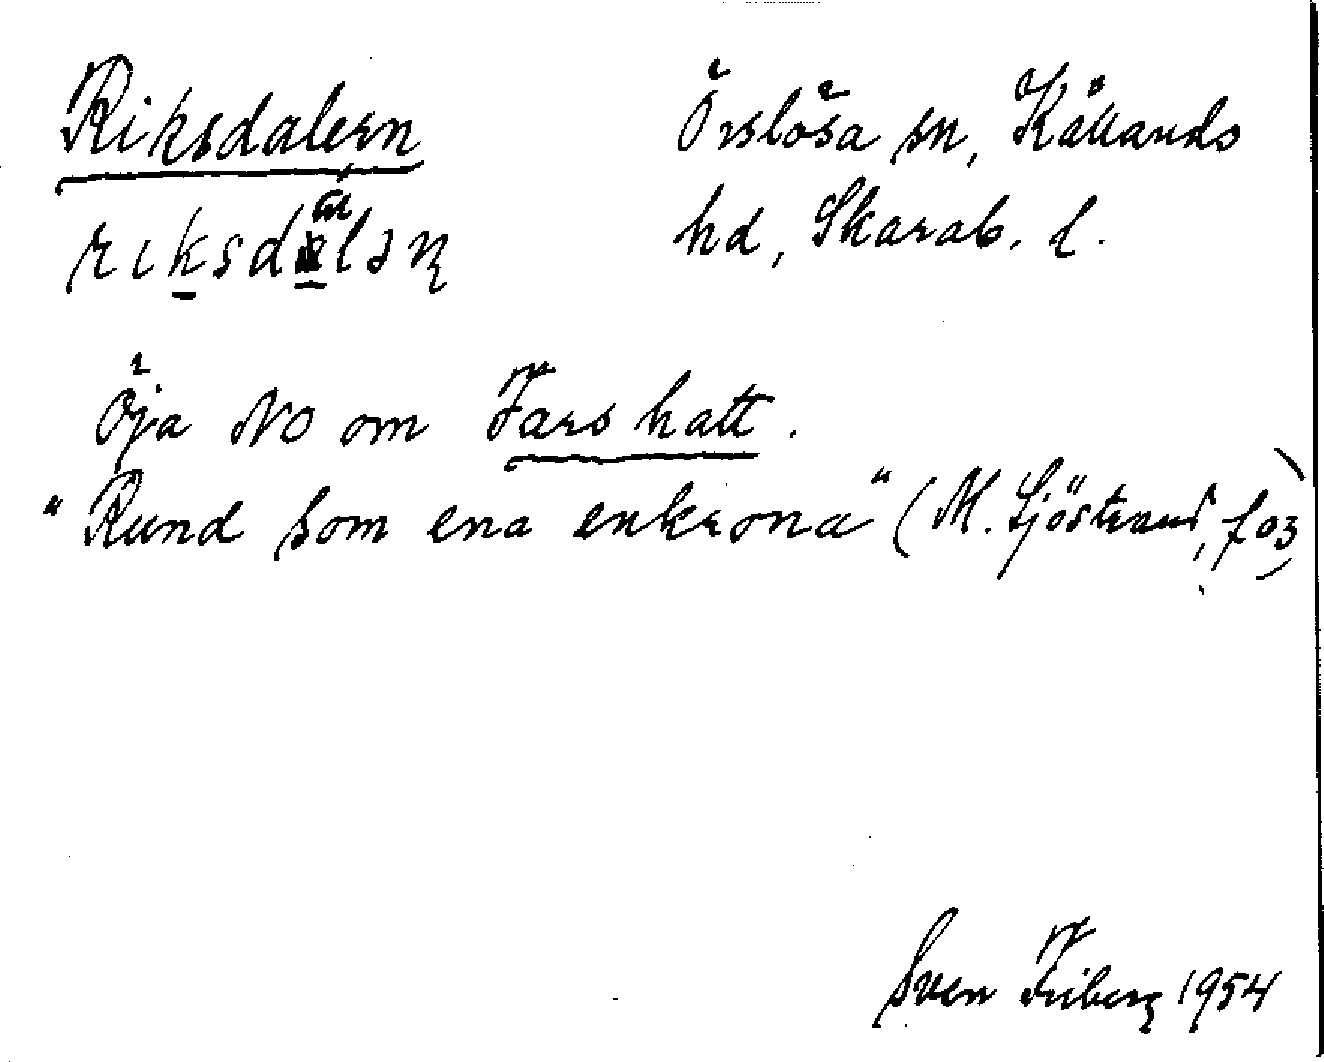 Riksdalern
Örslösa sn, Kållands
hd, Skarab. l.
Öja NO om Fars hatt.
"Rund som ena enkrona" (M. Sjöstrand, f 03)
Sven Friberg 1954